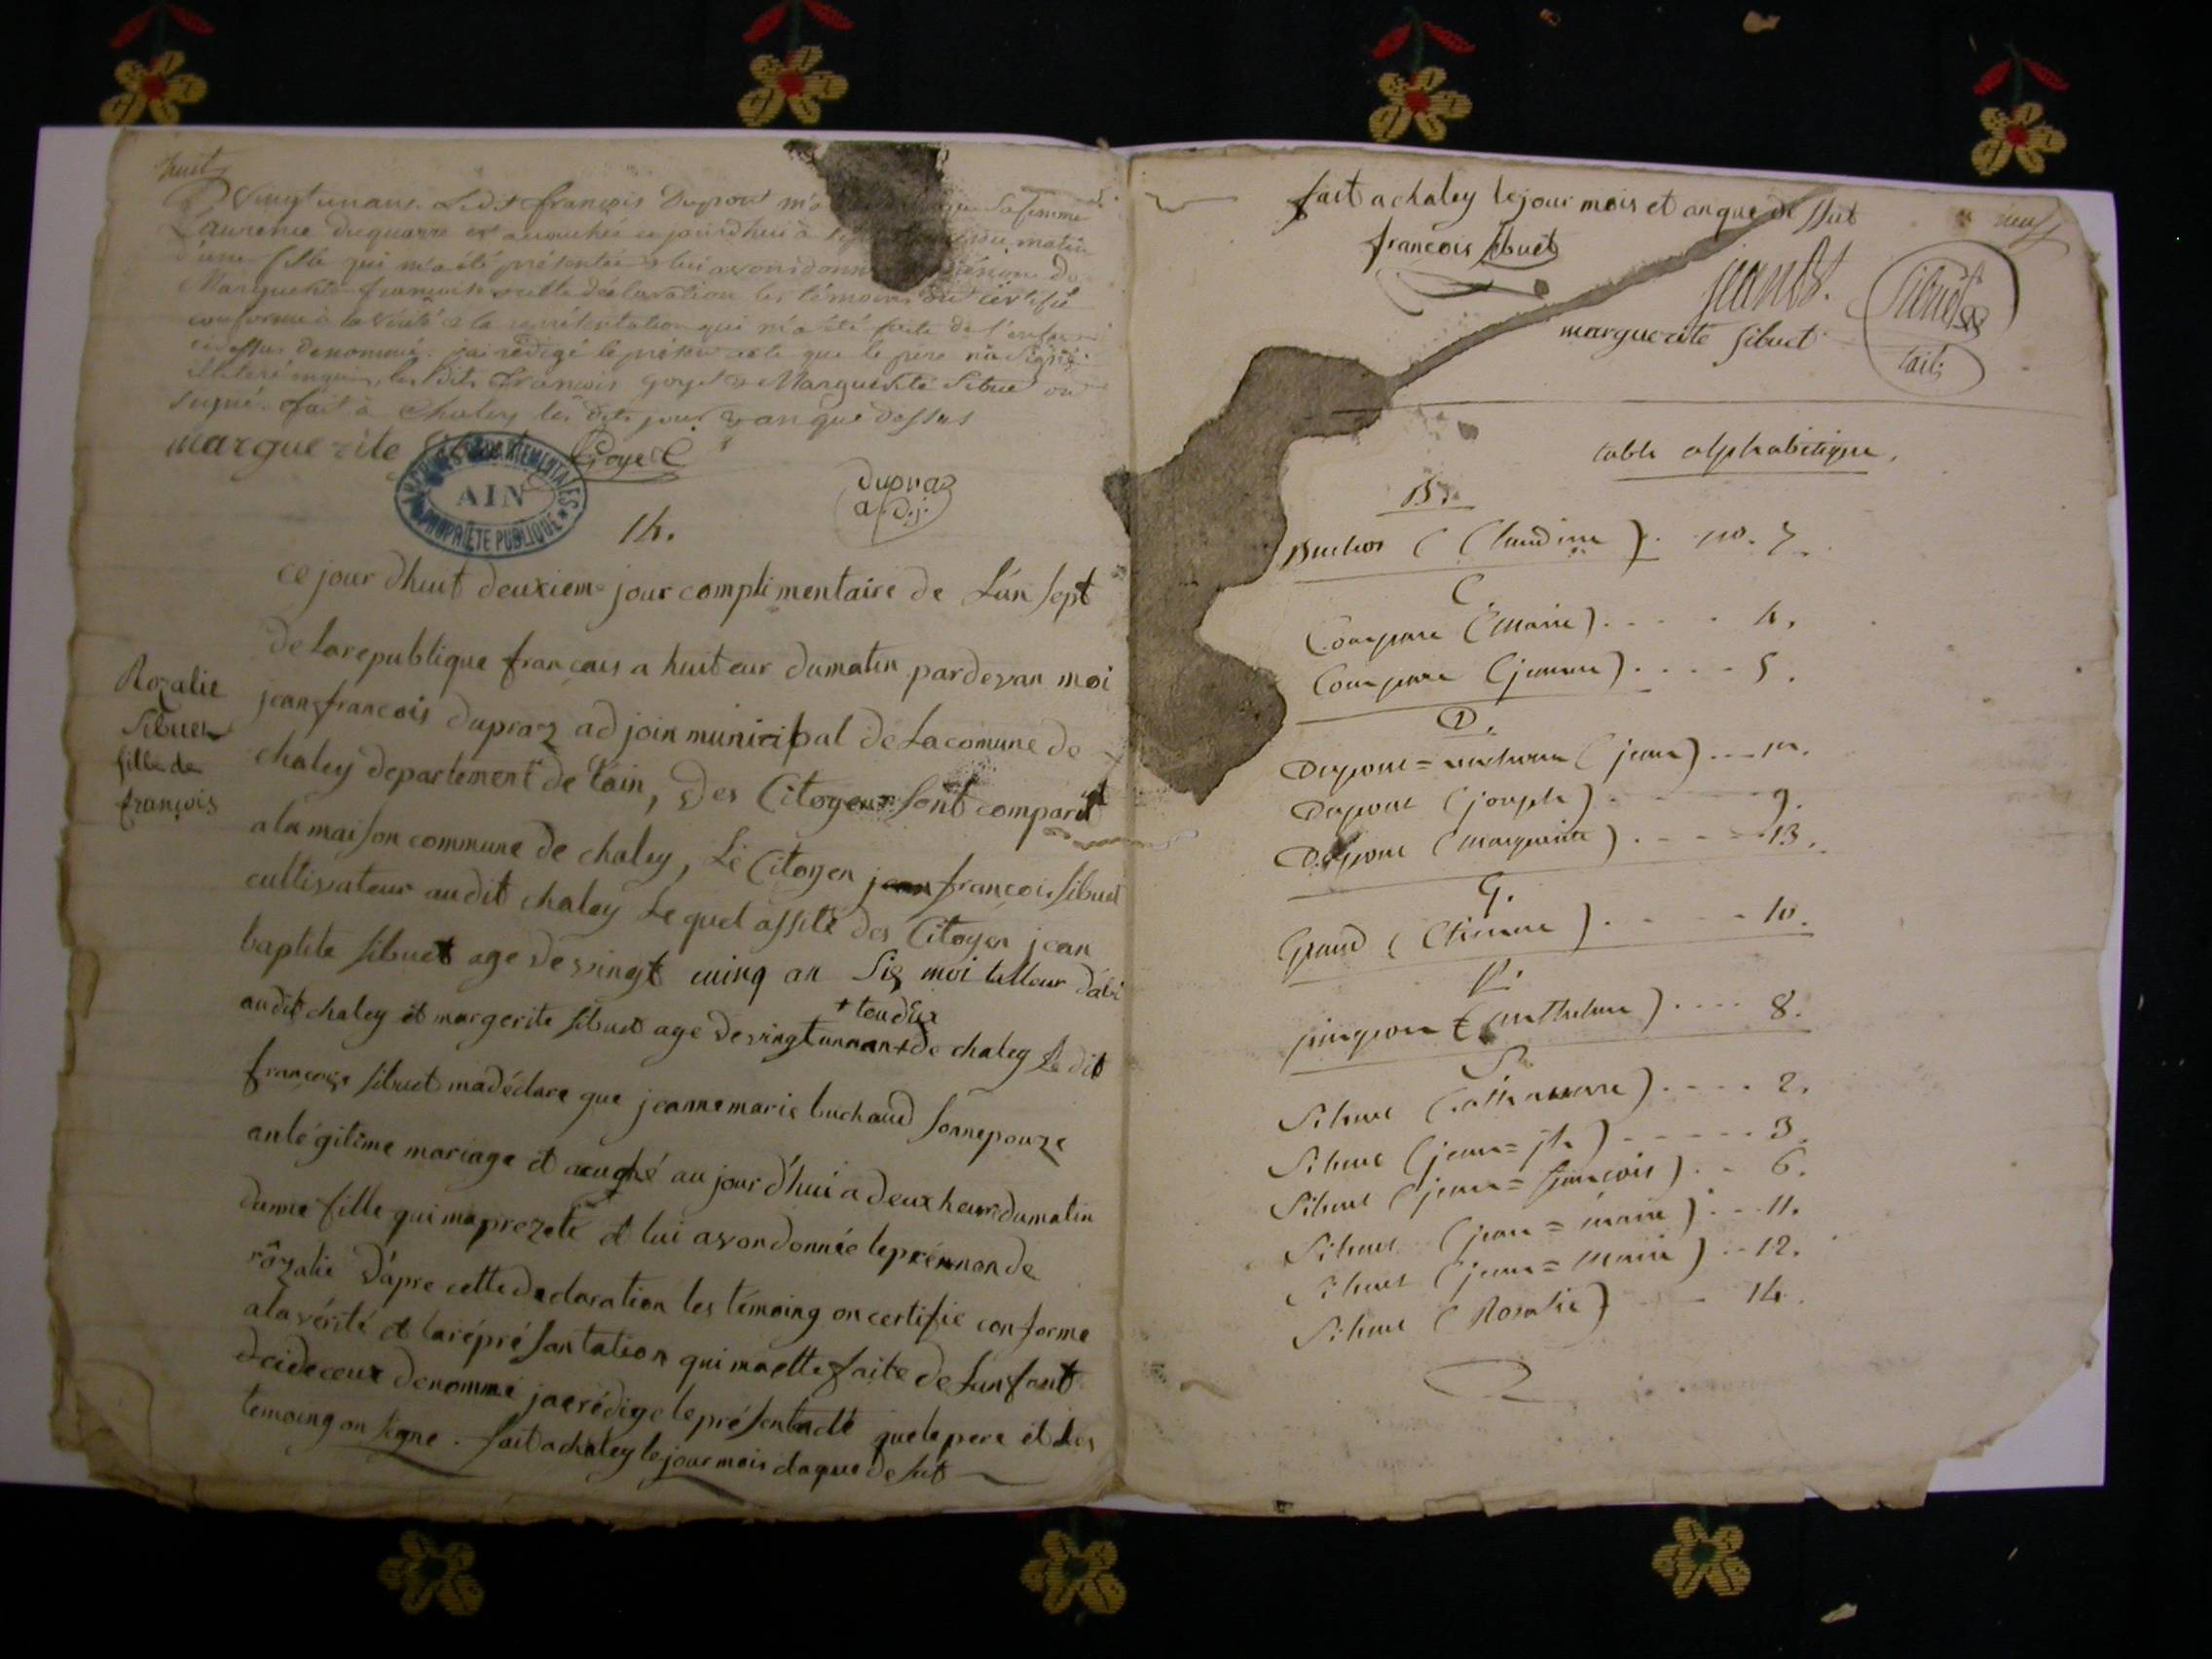 huit
vingt un ans. Ledit françois Dupont m'a sa femme
Laurence Duquarre est accouchée ce jourdhui à du matin
d'une fille qui m'a été présentée & lui avons donn
Marguerite françoise cette déclaration les témoins ont certifié
conforme à la vérité & la représentation qui m'a été faite de l'enfant
ci dessus denommé. j'ai rédigé le présent acte que le père n'a signé
enquis, les dits françois goyet & Marguerite Sibuet on
signé. fait à Chaley les dits jour & an que dessus
marguerite Goyet
ARCHIVES DEPARTEMENTALES
AIN
PROPRIÉTÉ PUBLIQUE
dupraz
adj.
14.
ce jour dhuit deuxiem jour complimentaire de L'an sept
de La republique francais a huit eur du matin pardevan moi
jean françois dupraz ad join municipal de La comune de
chaley departement de L'ain, des Citoyens sont comparut
a la maison commune de chaley, Le Citoyen jean francois sibuet
cultivateur audit chaley Le quel assité des Citoyen jean
baptite sibuet age de vingt cuinq an six moi talleur d'abi
+ toudeux
audit chaley et margerite sibuet age de vingt un nan + de chaley Le dit
françois sibuet ma déclare que jeanne marie buchaud sonnepouze
an légitime mariage et acuché au jour d'hui a deux heur du matin
dunne fille qui ma prezeté et lui avon donnée le prénnon de
rôzalie D'apre cette declaration les témoing on certifie conforme
a la vérité et la réprésantation qui ma ette faite de L'anfant
dcideceux denommé jae rédige le présent acte que le pere et Les
temoing on signe. fait a chaley le jour mois et a que desut
Rozalie
Sibuet
fille de
françois
neuf
fait a chaley le jour mois et an que de ssut
françois sibuet
jean bt. Sibuet
marguerite sibuet
table alphabetique.
B.
(Claudine). no. 7.
C.
Compare (Marie). . . . . 4.
Compare (jeanne). . . . . 5.
D.
Dupont = (jean) . . .
Dupont (joseph) . . . . 9.
Dupont (marguerite) . . . . 13.
G.
Grand (Etienne). . . . . 10.
P.
pingeon (Anthelme) . . . . 8.
S.
Sibuet (Catherine). . . . . 2.
Sibuet (jean = jh.) . . . . . 3.
Sibuet (jean = françois) . . 6.
Sibuet (jean = marie) . . . 11.
Sibuet (jean = marie) . . 12.
Sibuet (Rosalie) . . 14.